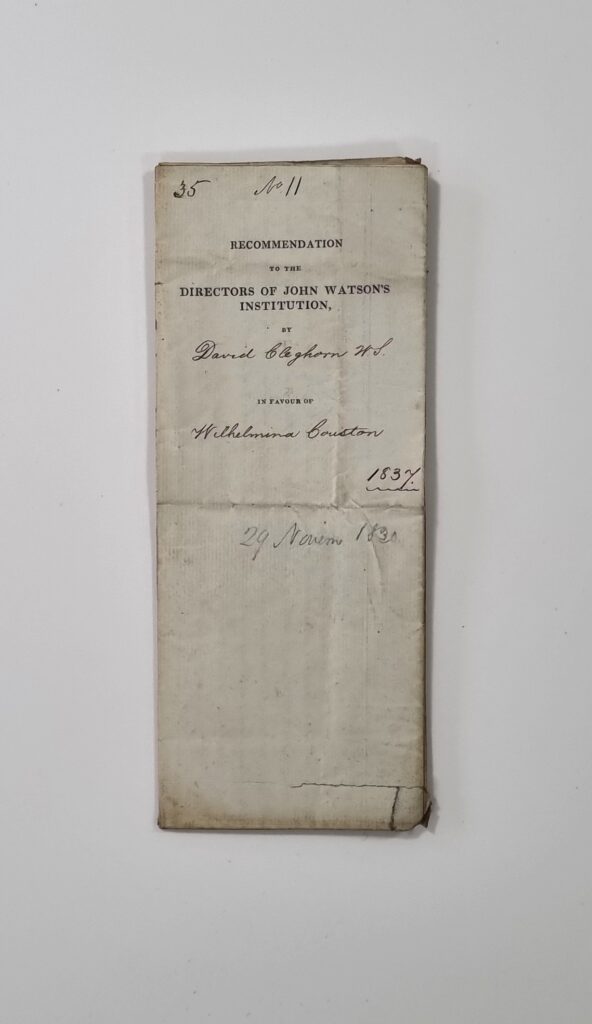 35 No 11
RECOMMENDATION
TO THE
DIRECTORS OF JOHN WATSON'S
INSTITUTION,
BY
David Cleghorn W.S.
IN FAVOUR OF
Wilhelmina Couston
1837
29 Novem